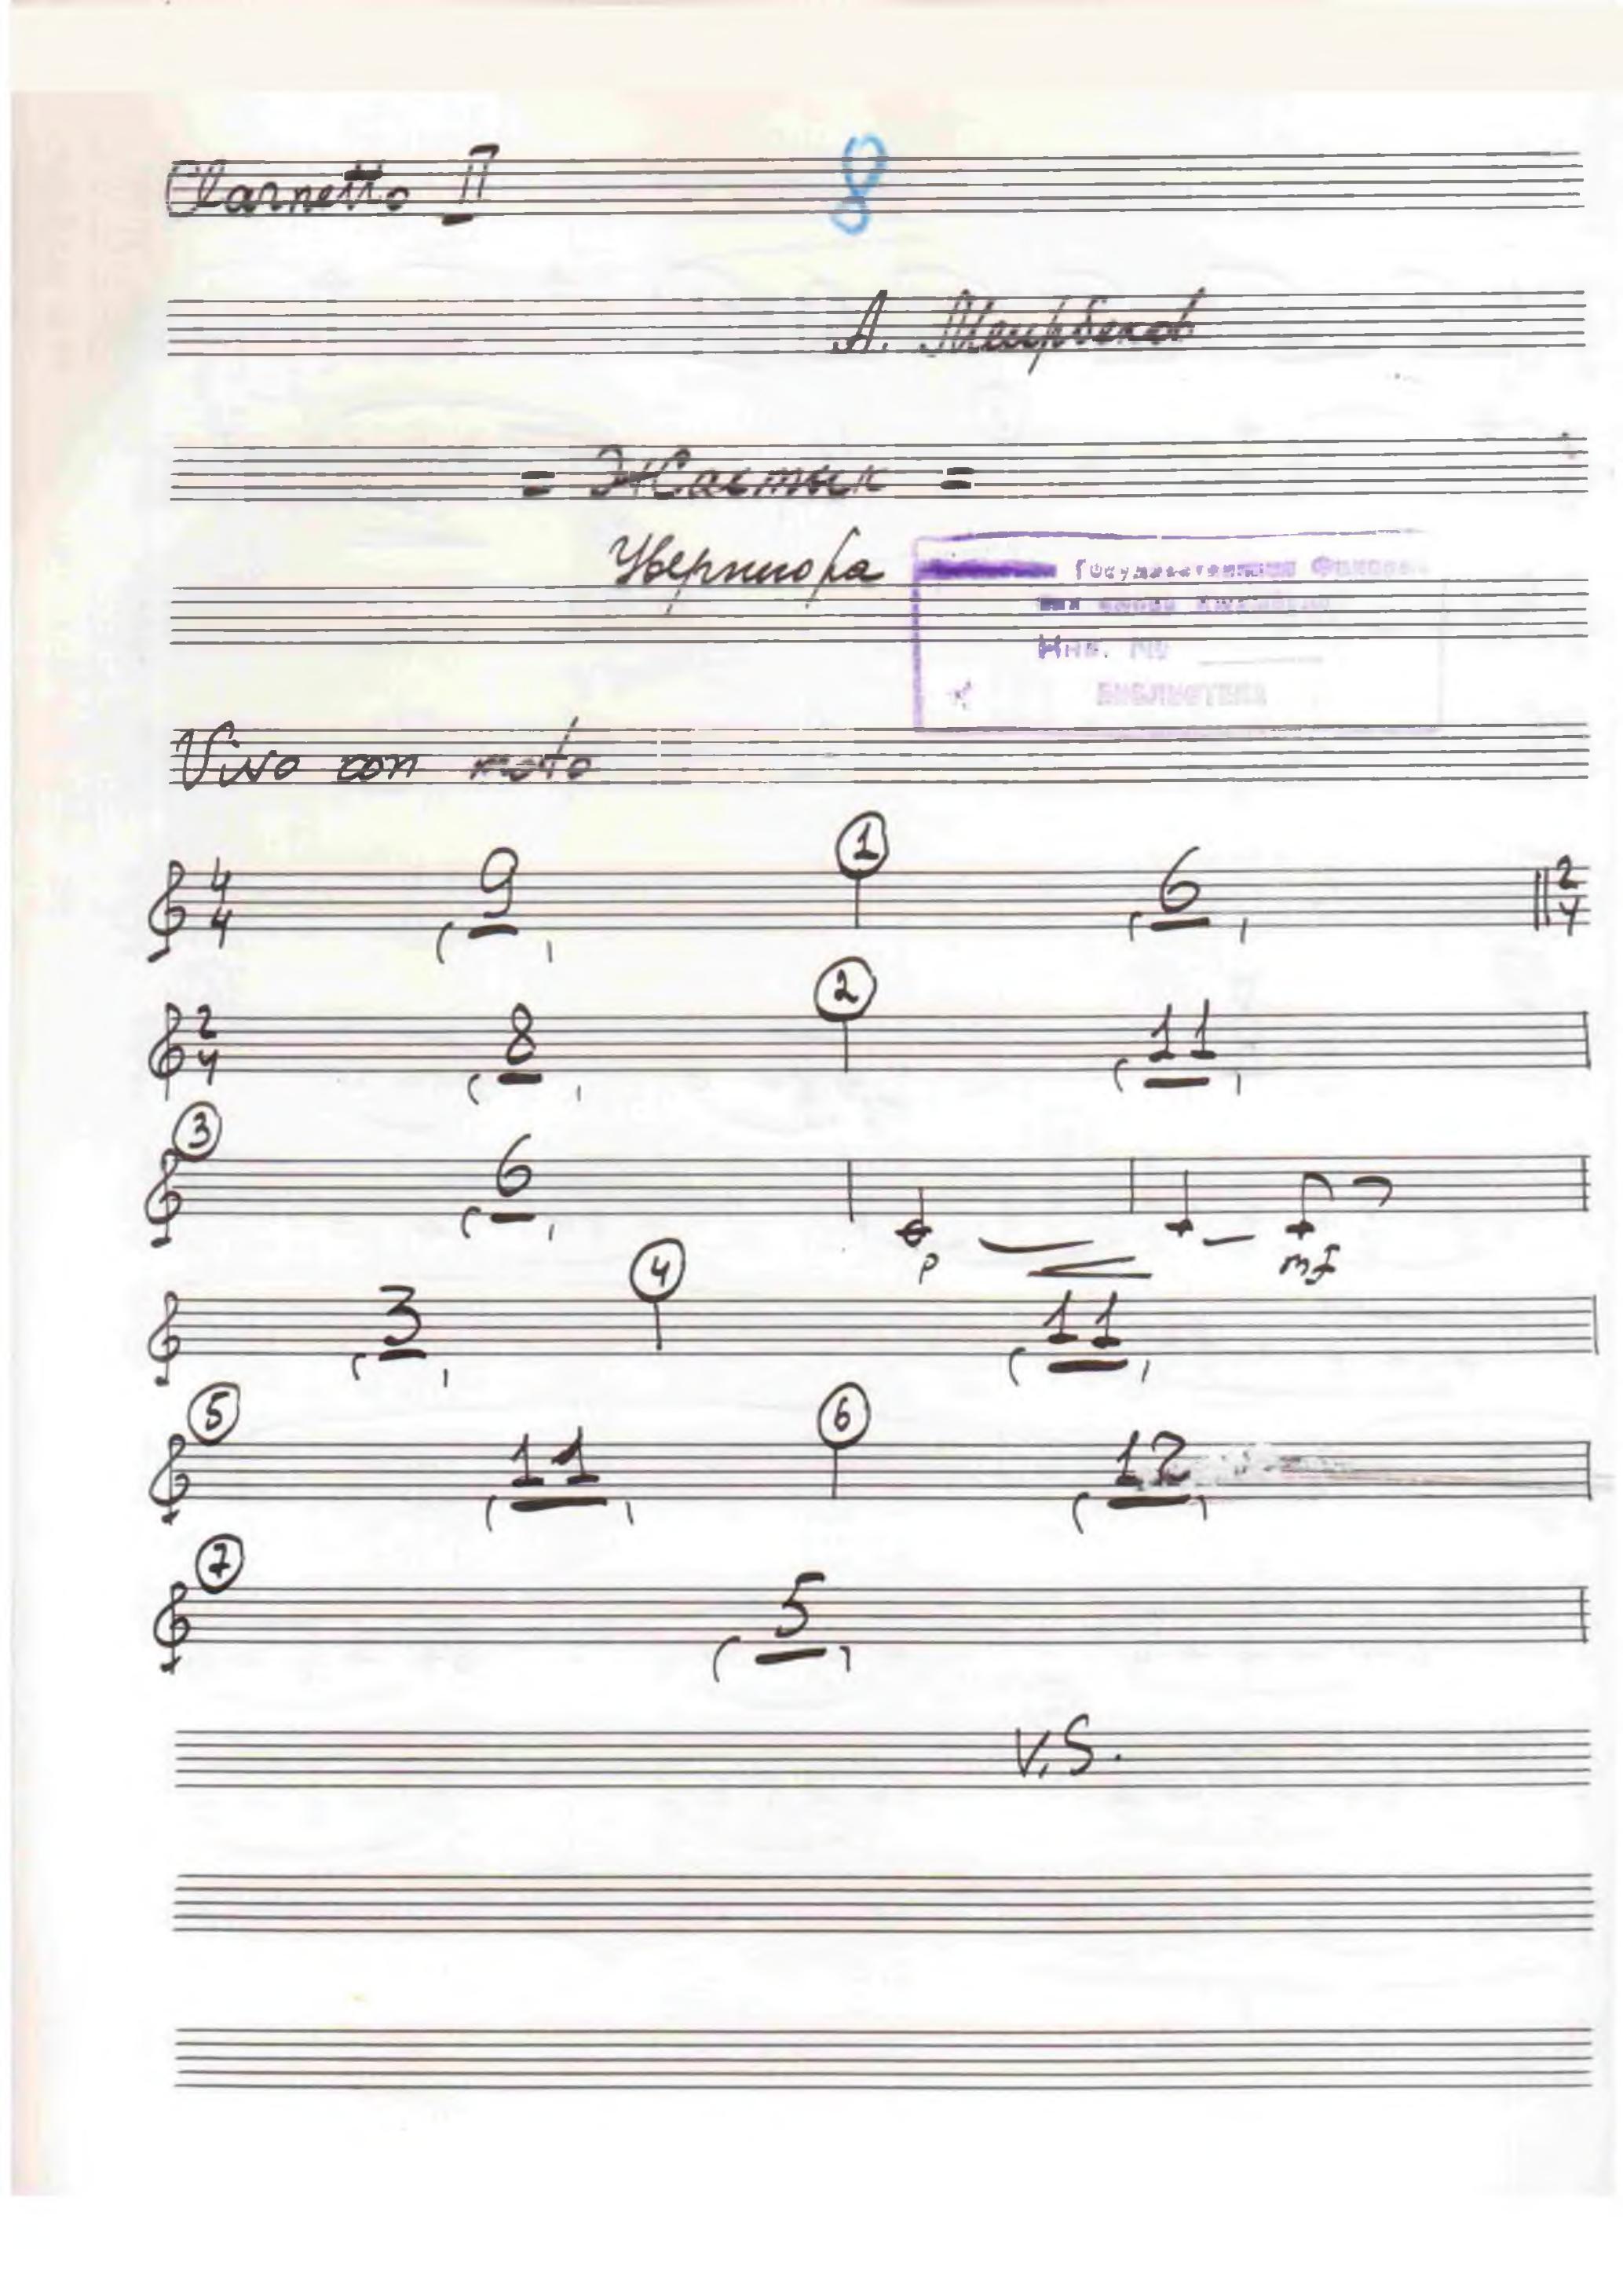 Clarnetto II 8
А. Меирбеков
= Жастык =
Увертюра
Государственная
Инв. №
БИБЛИОТЕКА
Vivo con moto
1
4 4 9 6 2 4
2
2 4 8 11
3
6
p mf
4
3 11
5 6
11 12
7
5
V.S.